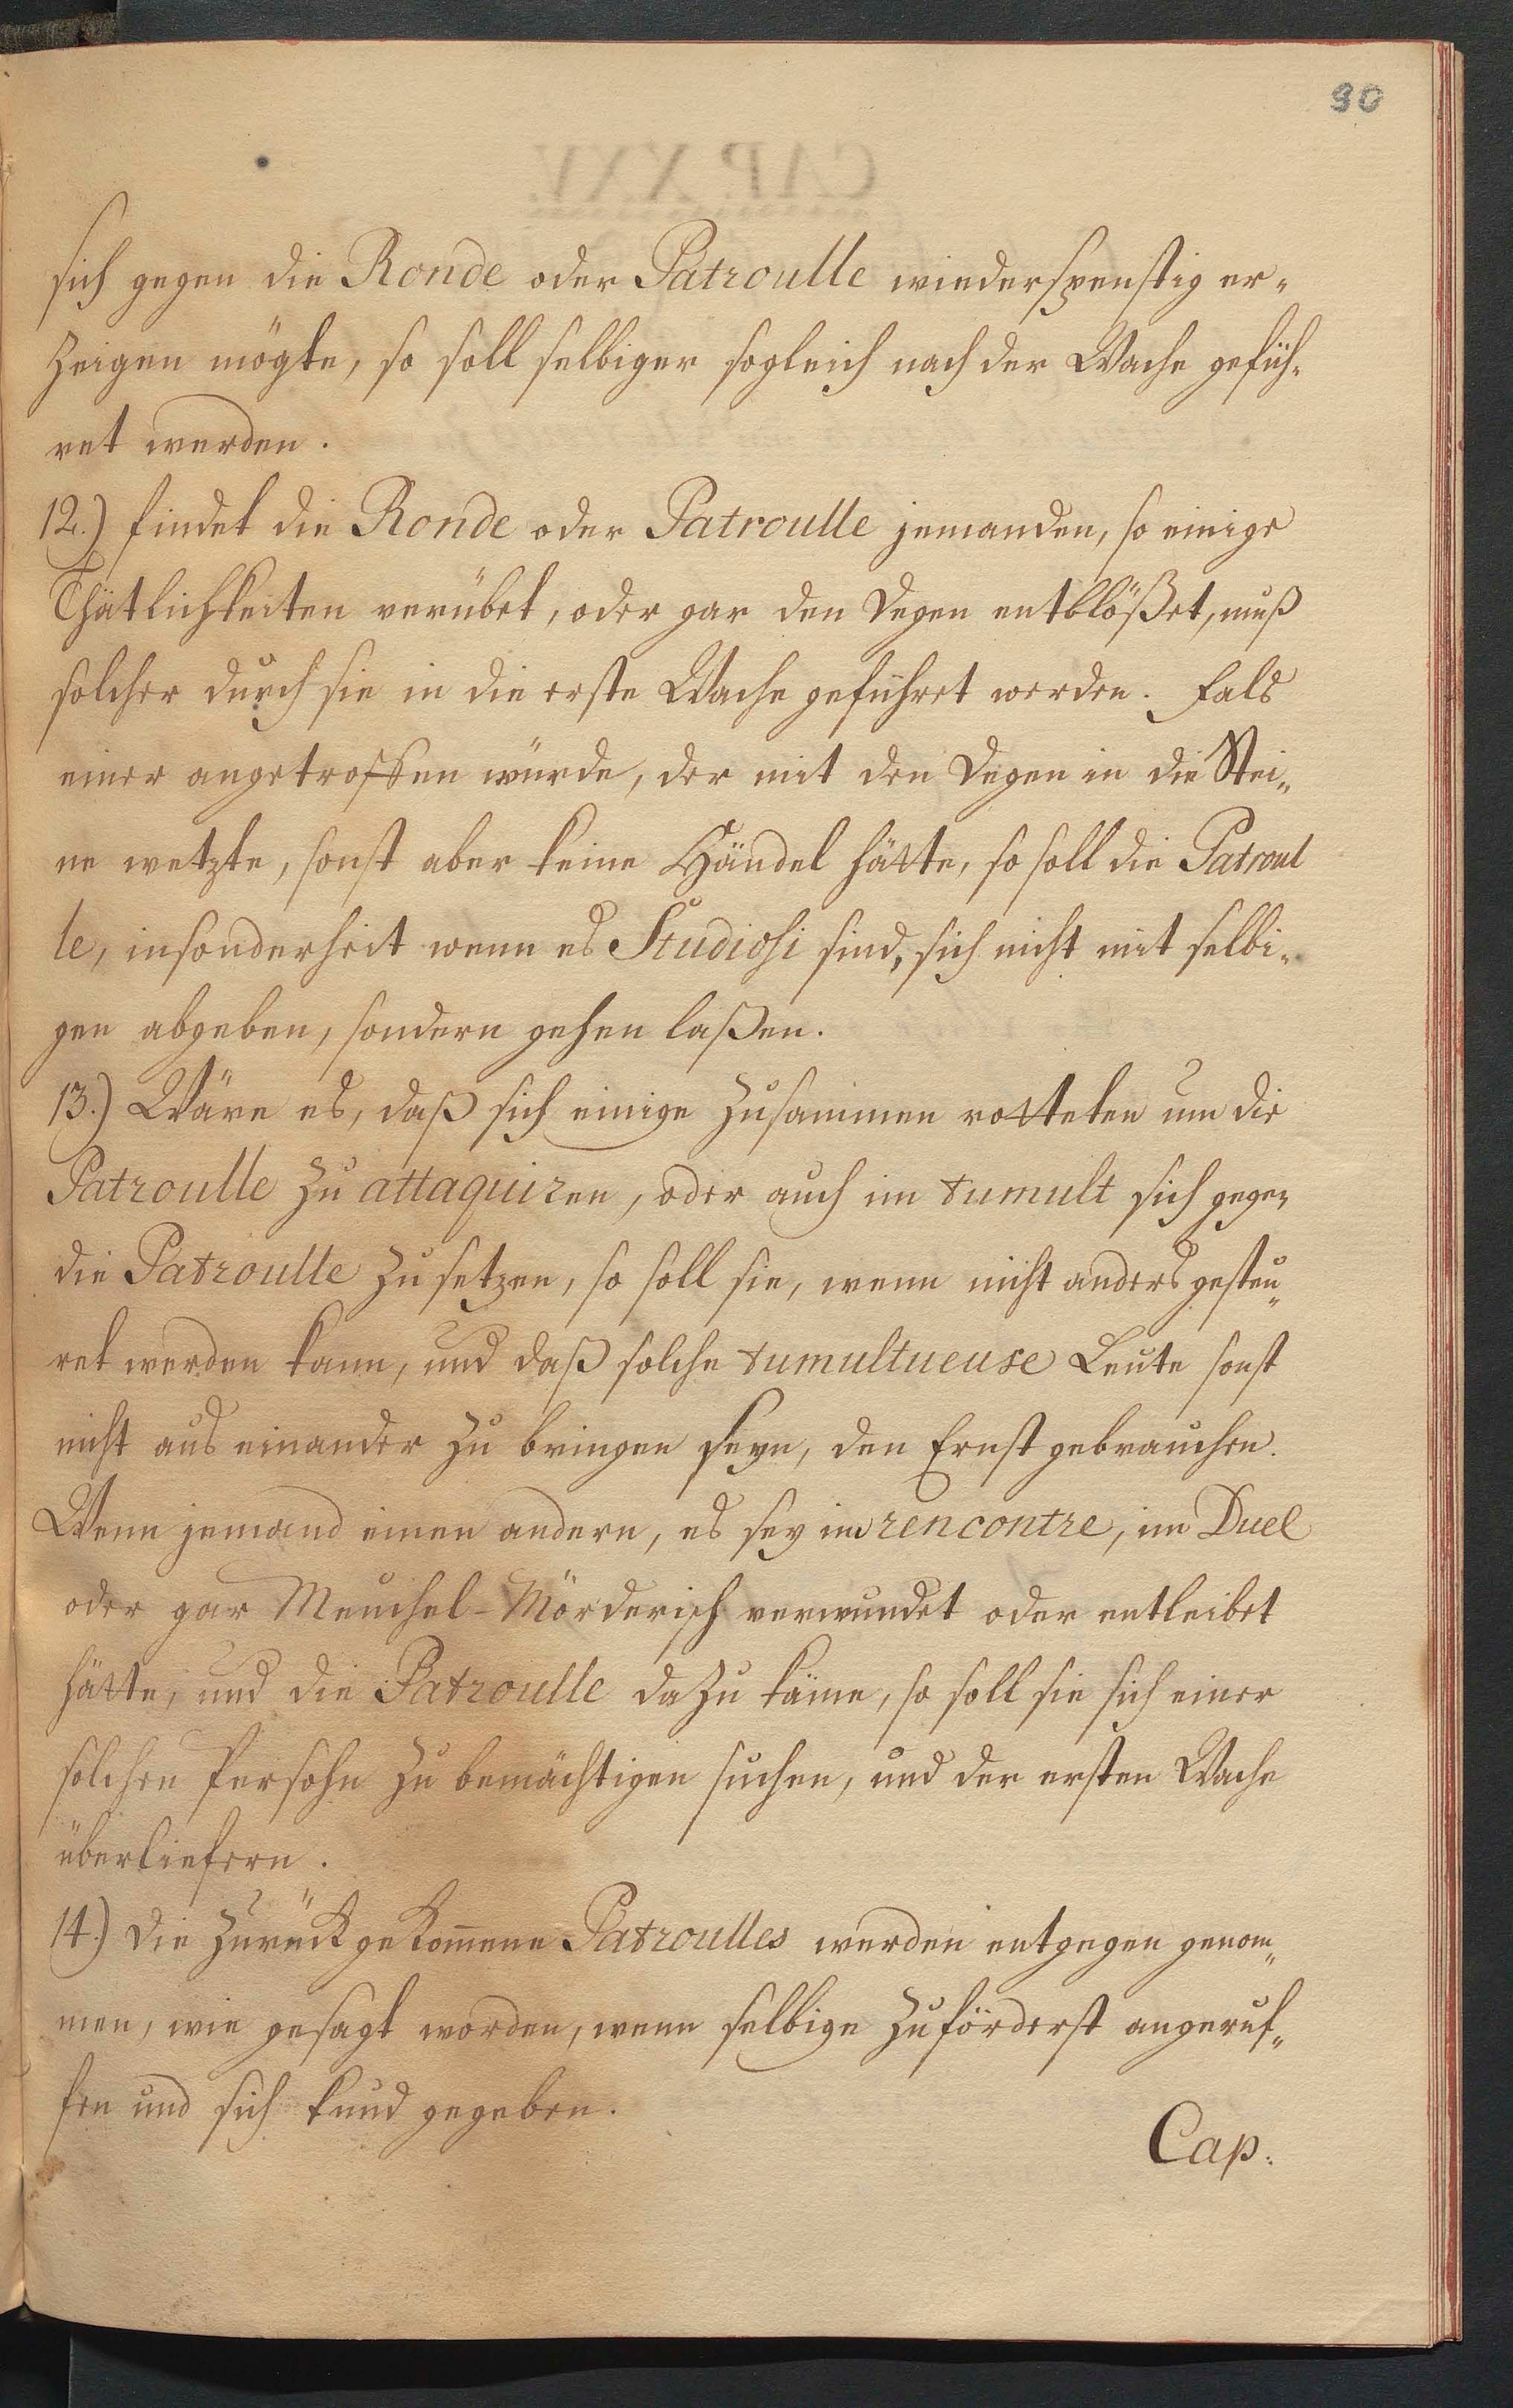 90
sich gegen die Ronde oder Patroulle wiederspenstig er-
zeigen mögte, so soll selbiger sogleich nach der Wache gefüh-
ret werden.
12.) findet die Ronde oder Patroulle jemanden, so einige
Thätlichkeiten verübet, oder gar den Degen entblößet, muß
solcher durch sie in die erste Wache geführet werden. Fals
einer angetroffen würde, der mit den Degen in die Stei-
ne wetzte, sonst aber keine Händel hätte, so soll die Patroul
le, insonderheit wenn es Studiosi sind, sich nicht mit selbi-
gen abgeben, sondern gehen laßen.
13.) Wäre es, daß sich einige zusammen rotteten um die
Patroulle zu attaquiren, oder auch im tumult sich gegen
die Patroulle zu setzen, so soll sie, wenn nicht anders gesteu-
ret werden kann, und daß solche tumultueuse Leute sonst
nicht aus einander zu bringen seyn, den Ernst gebrauchen.
Wenn jemand einen andern, es sey im rencontre, im Duel
oder gar Meuchel-Mörderisch verwundet oder entleibet
hätte, und die Patroulle dazu käme, so soll sie sich einer
solchen Persohn zu bemächtigen suchen, und der ersten Wache
überliefern.
14.) Die zurück gekom̅ene Patroulles werden entgegen genom-
men, wie gesagt worden, wenn selbige zuförderst angeruf-
fen und sich kund gegeben.
Cap.